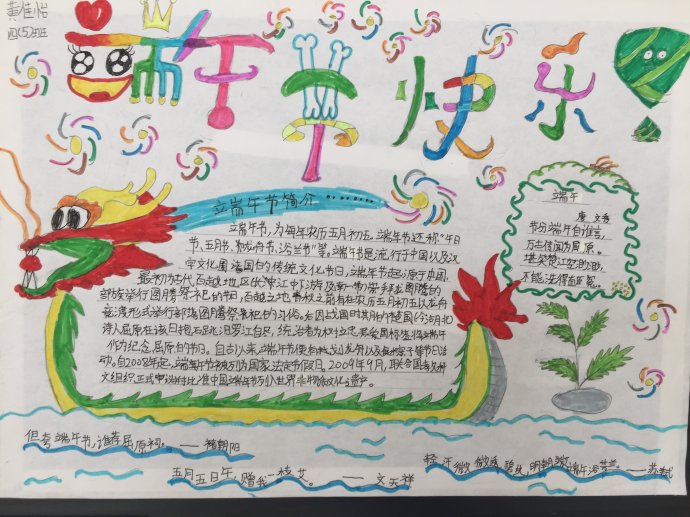 黄佳怡
四(5)班
端午节快乐
端午节简介
端午节,为每年农历五月初五,端午节还称“午日
节、五月节、龙舟节、浴兰节”等。端午节是流行于中国以及汉
字文化圈诸国的传统文化节日,端午节起源于中国,
最初为古代百越地区(长江中下游及南一带)崇拜龙图腾的
部族举行图腾祭祀的节日,百越之地春秋之前有在农历五月初五以龙舟
竞渡形式举行部落图腾祭祀的习俗。
诗人屈原在该日抱石跳汨罗江自尽,统治者为树立忠君爱国标签将端午
作为纪念屈原的节日。自古以来端午节便有划龙舟以及食粽子等节日活
动。自2008年起,端午节被列为国家法定节假日,2009年9月,联合国
文组织正式审议并批准中国端午节列入世界非物质文化遗产。
端午
唐 文秀
节分端午自谁言,
万古传闻为屈原。
堪笑楚江空渺渺,
不能洗得直臣冤。
但夸端午节,谁荐屈原祠。——褚朝阳
五月五日午,赠我一枝艾。——文天祥
轻汗微微透碧纨,明朝端午浴芳兰。——苏轼